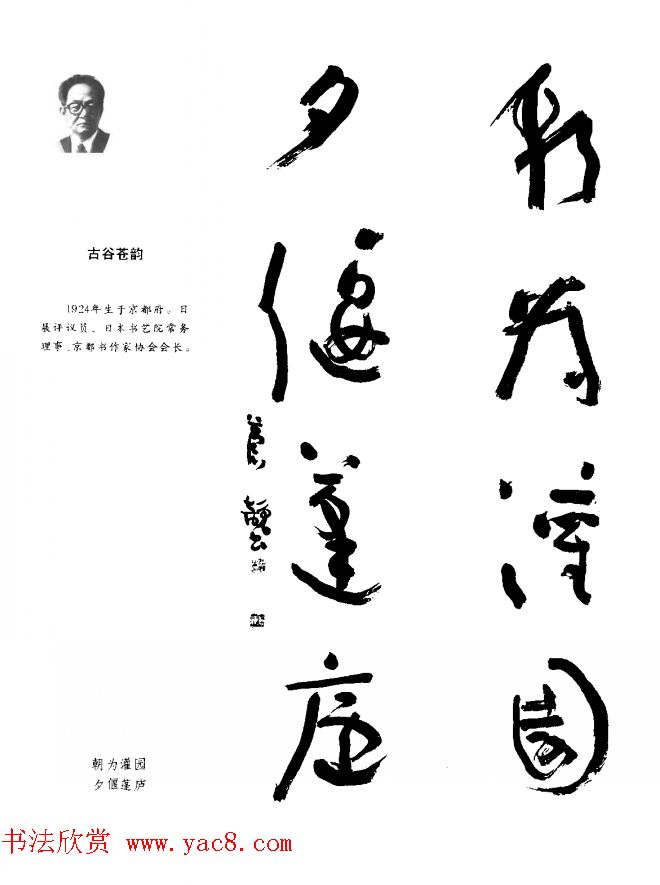 朝为灌园
夕偃蓬庐
古谷苍韵
1924年生于京都府。日
展评议员。日本书艺院常务
理事、京都书作家协会会长。
朝为灌园
夕偃蓬庐
书法欣赏 www.yac8.com